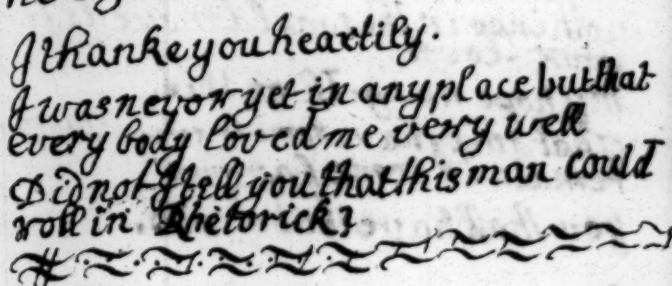 I thanke you heartily.
I was never yet in any place but that
every body loved me verry well
Did not I tell you that this man could
roll in Rhetorick?